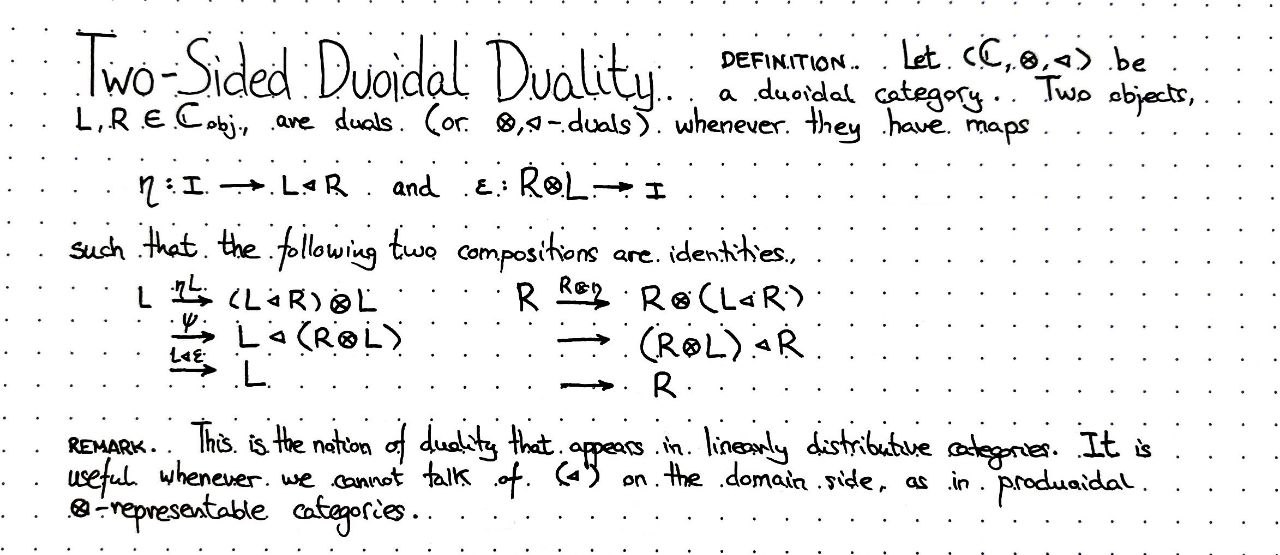 Two-Sided Duoidal Duality. DEFINITION. Let (ℂ, ⊗, ◁) be
a duoidal category. Two objects,
L, R ∈ ℂobj, are duals (or ⊗,◁-duals) whenever they have maps
η : I → L ◁ R and ε : R ⊗ L → I
such that the following two compositions are identities,
L —ηL→ (L ◁ R) ⊗ L R —R⊗η→ R ⊗ (L ◁ R)
—ψ→ L ◁ (R ⊗ L) → (R ⊗ L) ◁ R
—L◁ε→ L → R
REMARK. This is the notion of duality that appears in linearly distributive categories. It is
useful whenever we cannot talk of (◁) on the domain side, as in produoidal
⊗-representable categories.